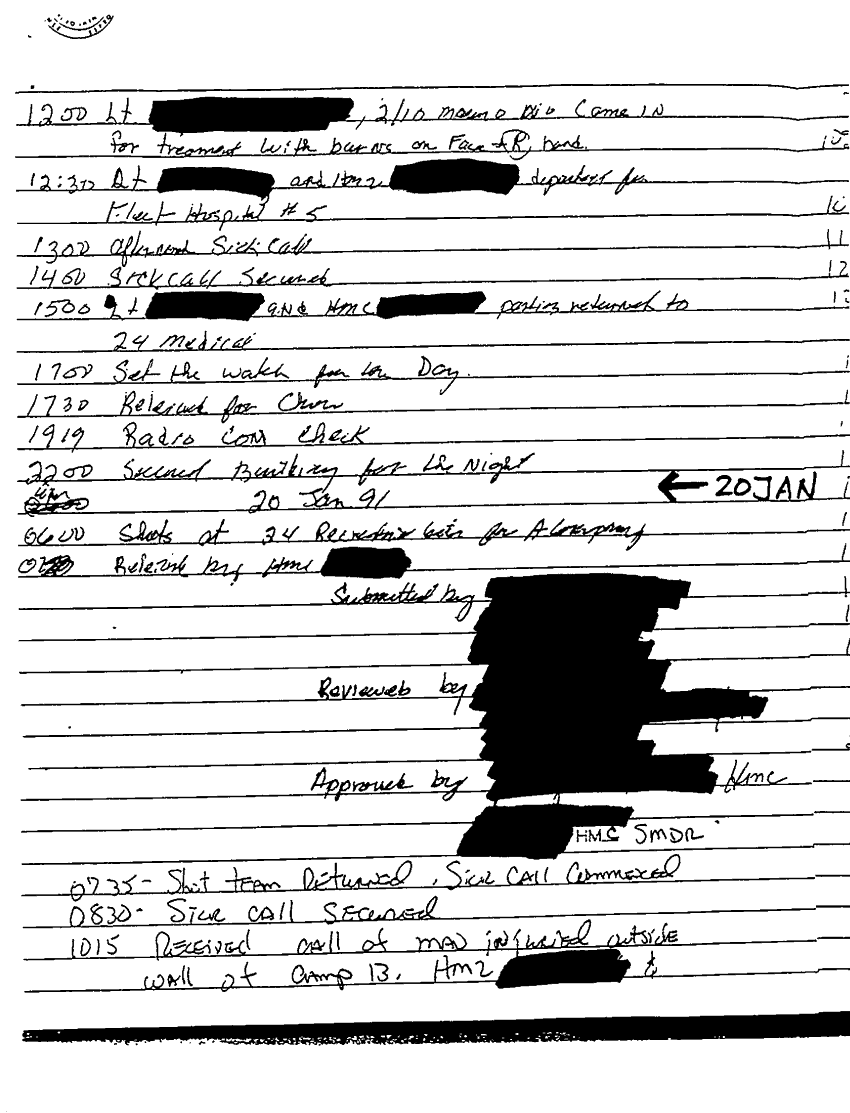 1200 Lt , 2/10 Came IN
for treament with burns on Face + R hand.
12:30 Lt and Hm2 departed for
Fleet Hospital # 5
1300 afternoon Sick Call
1400 Sick call Secured
1500 Lt and HMC returned to
24 medical
1700 Set the watch for the Day.
1730 Relieved for Chow
1919 Radio Com Check
2200 Secured for the Night
20 Jan 91
← 20 JAN
0600 Shots at 24 for
Relieved by Hmc
Submitted by
Reviewed by
Approved by Hmc
HMC SMDR
0735- Shot team Returned. Sick Call Commenced
0830- Sick call Secured
1015 Received call of man injuried outside
wall of Camp 13. Hm2